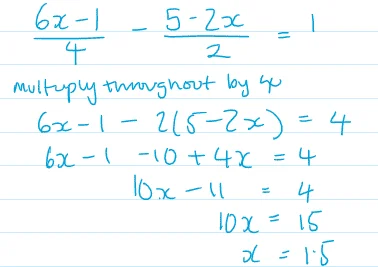 (6x-1)/4 - (5-2x)/2 = 1
multiply throughout by 4
6x-1 - 2(5-2x) = 4
6x-1 -10 + 4x = 4
10x - 11 = 4
10x = 15
x = 1.5